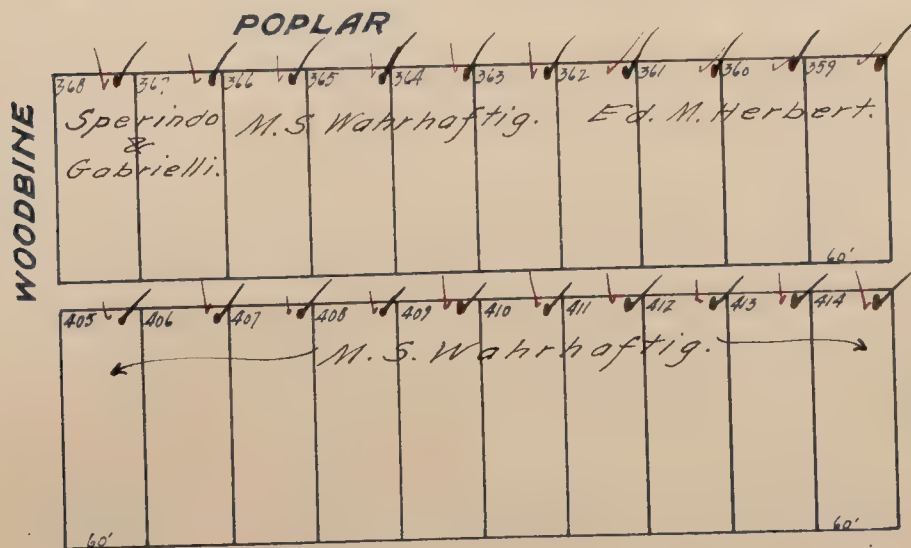 POPLAR
WOODBINE
368 367 366 365 364 363 362 361 360 359
Sperindo M.S. Wahrhaftig. Ed. M. Herbert.
&
Gabrielli.
60'
405 406 407 408 409 410 411 412 413 414
M. S. Wahrhaftig.
60' 60'